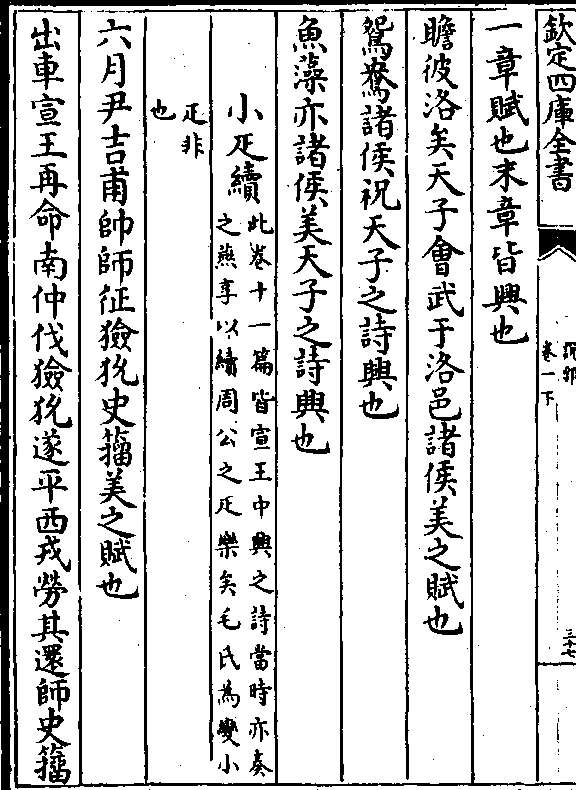 欽定四庫全書
說郛
卷一下
三十七
一章賦也末章皆興也
瞻彼洛矣天子會武于洛邑諸侯美之賦也
鴛鴦諸侯祝天子之詩興也
魚藻亦諸侯美天子之詩興也
小疋續
此卷十一篇皆宣王中興之詩當時亦奏
之燕享以續周公之疋樂矣毛氏為變小
疋非
也
六月尹吉甫帥師征獫狁史籀美之賦也
出車宣王再命南仲伐獫狁遂平西戎勞其還師史籀